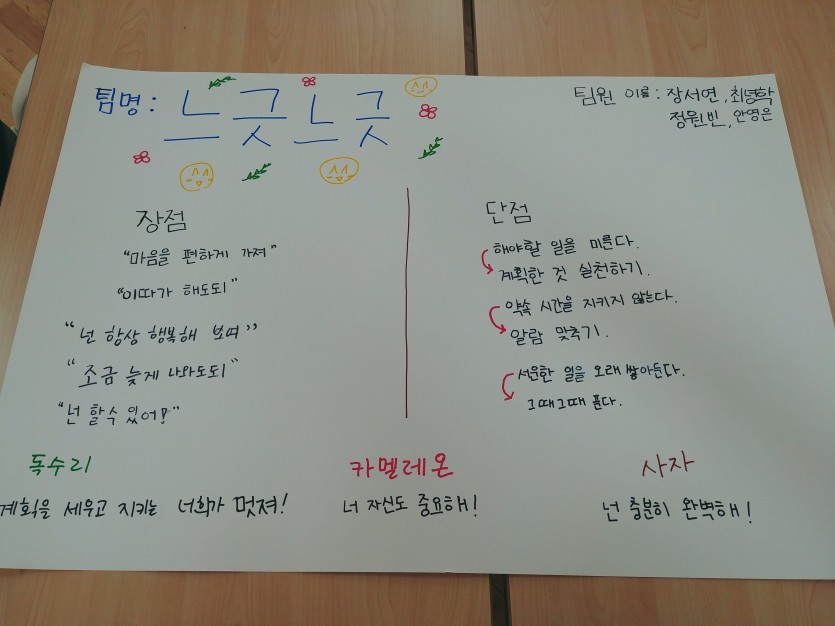 팀명 : 느긋느긋
팀원 이름 : 장서연, 최녕학
정원빈, 안영은
장점
"마음을 편하게 가져"
"이따가 해도되"
"넌 항상 행복해 보여"
"조금 늦게 나와도되"
"넌 할수 있어!"
단점
해야할 일을 미룬다.
계획한 것 실천하기.
약속 시간을 지키지 않는다.
알람 맞추기.
서운한 일을 오래 쌓아둔다.
그때그때 푼다.
독수리
계획을 세우고 지키는 너희가 멋져!
카멜레온
너 자신도 중요해!
사자
넌 충분히 완벽해!